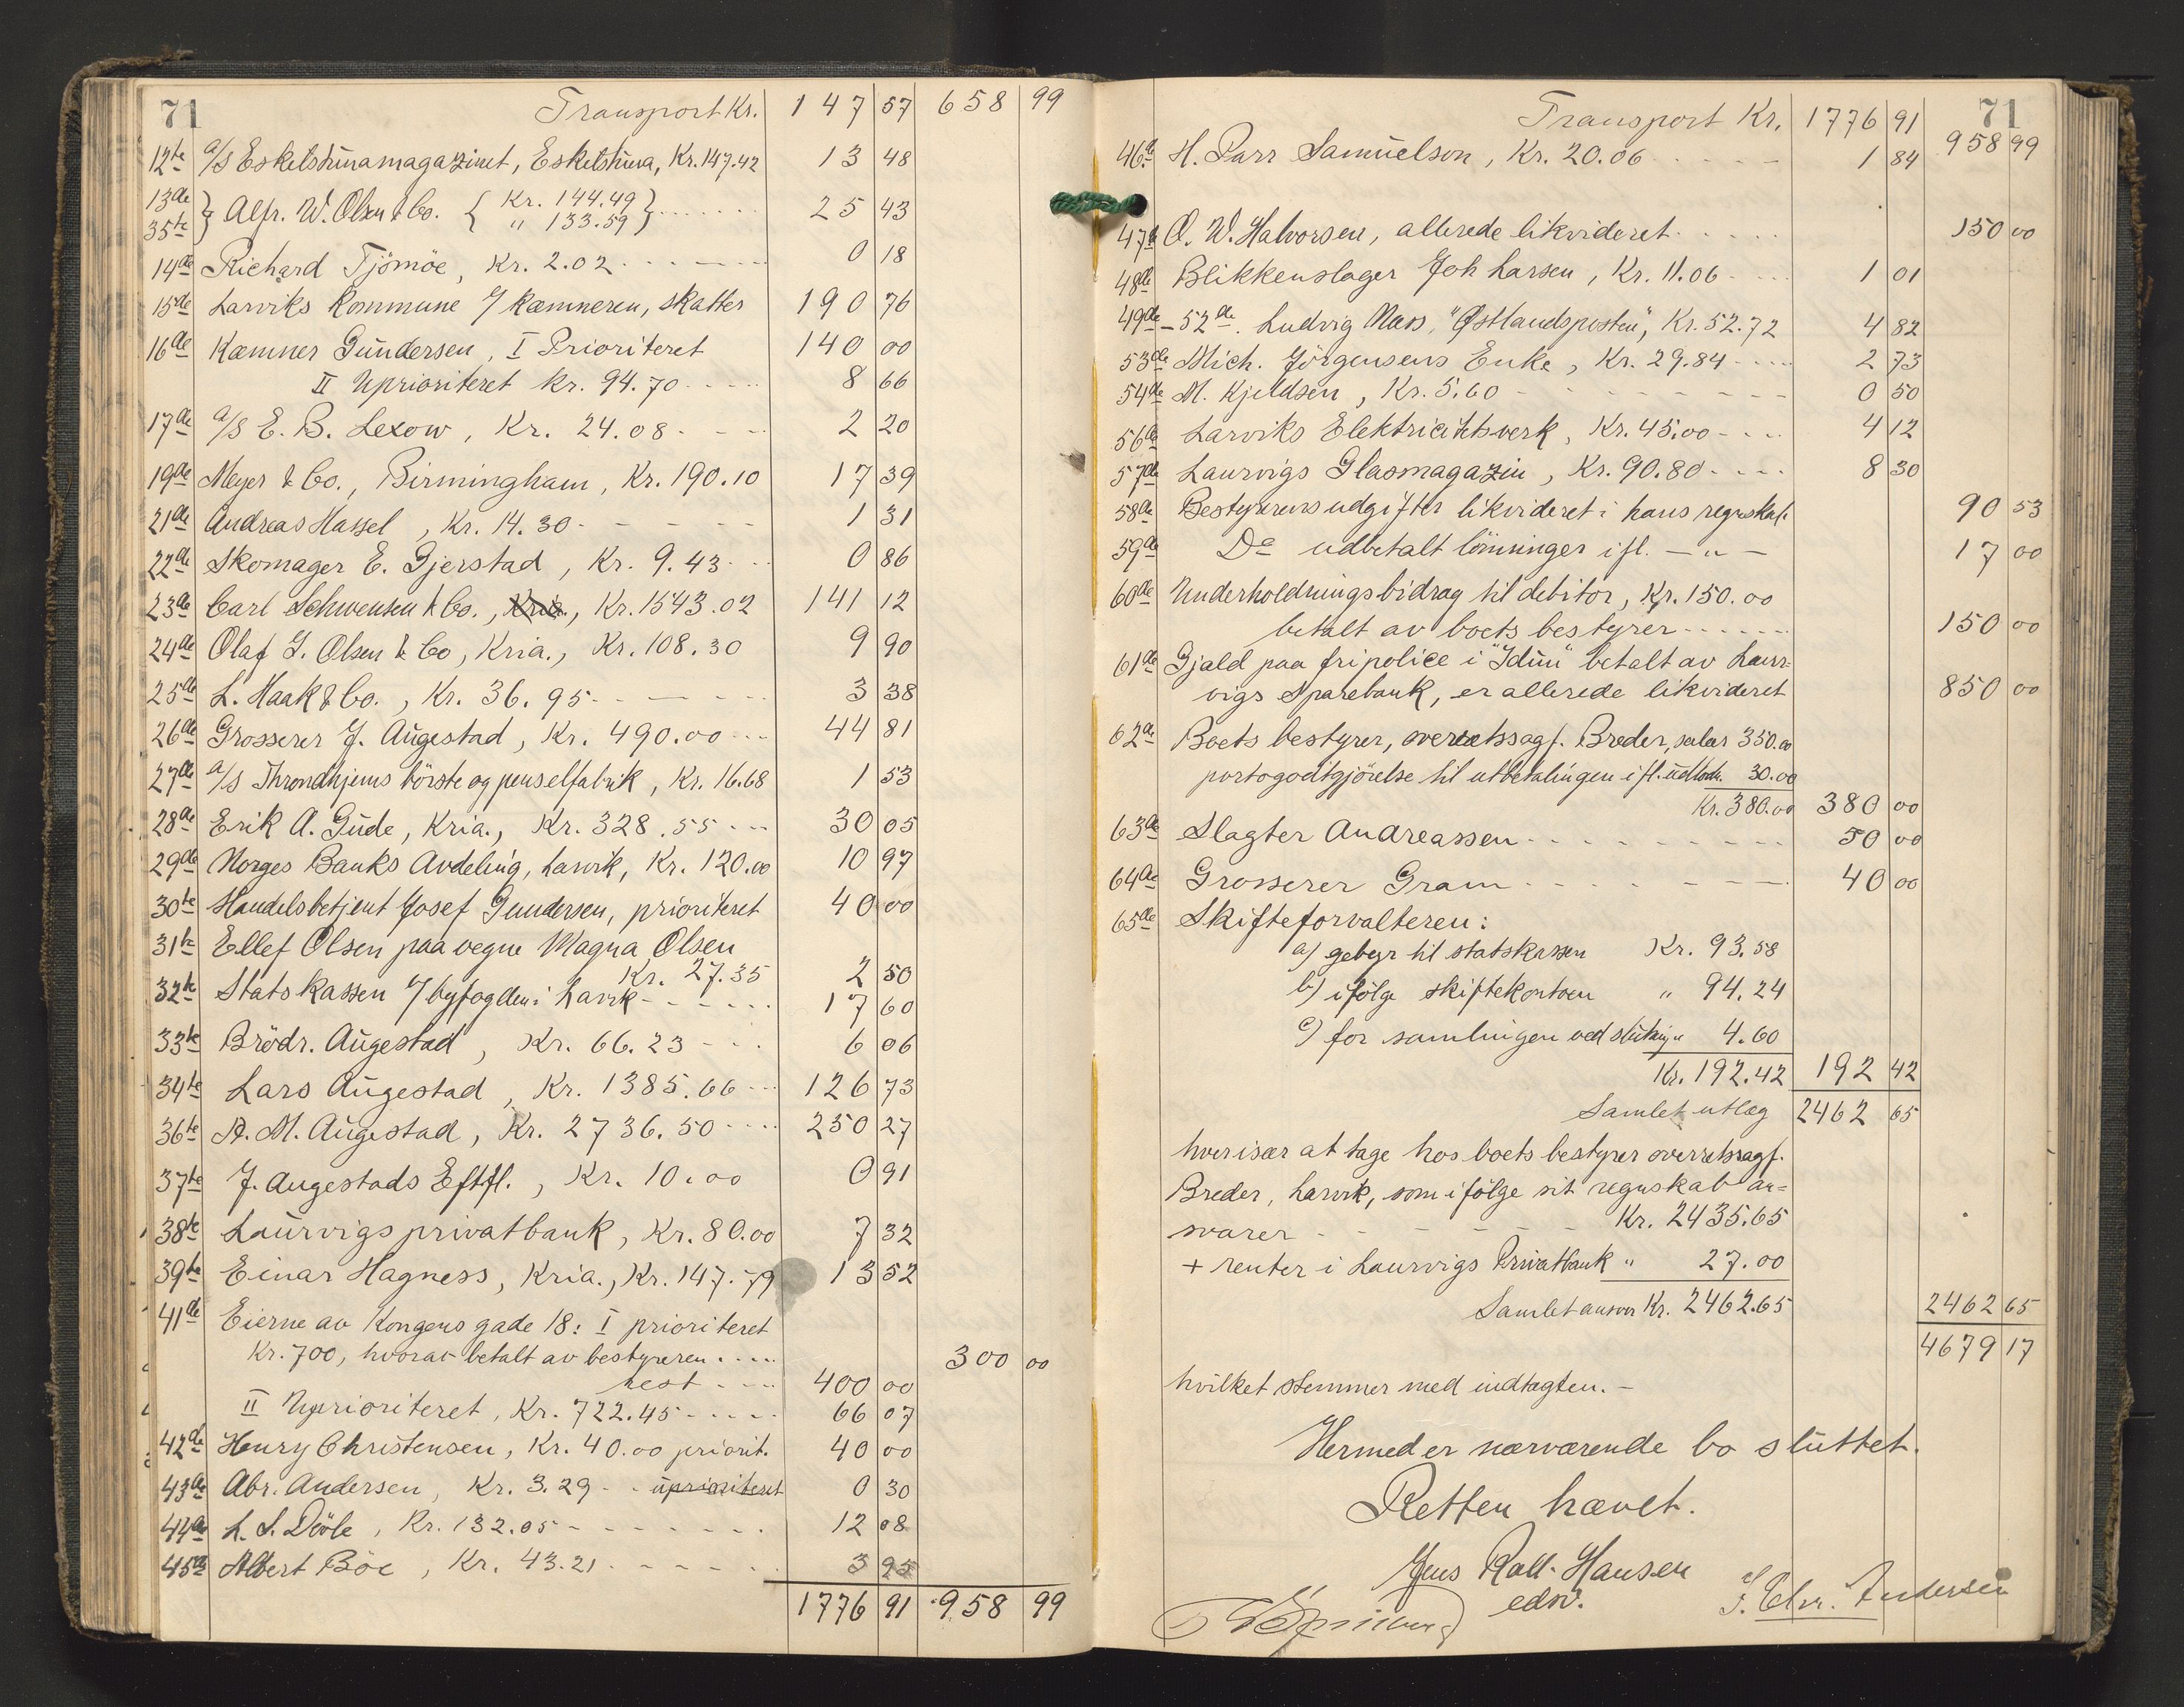 71 Transport Kr. 147 57 658 99
12te a/s Eskelstunamagazinet, Eskelstuna, Kr. 147.42 13 48
13de 35te } Alfr. W. Olsen & Co. { Kr. 144.49 25 43
" 133.59 }
14de Richard Tjömöe, Kr. 2.02 0 18
15de Larviks Kommune v/ kæmneren, skatter 190 76
16de Kæmner Gundersen, I Prioriteret 140 00
II Uprioriteret kr. 94.70 8 66
17de a/s E. B. Lexow, Kr. 24.08 2 20
19de Meyer & Co., Birmingham, Kr. 190.10 17 39
21de Andreas Hassel, Kr. 14.30 1 31
22de Skomager E. Gjerstad, Kr. 9.43 0 86
23de Carl Schwensen & Co., Kria., Kr. 1543.02 141 12
24de Olaf J. Olsen & Co, Kria., Kr. 108.30 9 90
25de L. Haak & Co., Kr. 36.95 3 38
26de Grosserer J. Augestad, Kr. 490.00 44 81
27de a/s Throndhjems börste og penselfabrik, Kr. 16.68 1 53
28de Erik A. Gude, Kria., Kr. 328.55 30 05
29de Norges Banks Avdeling, Larvik, Kr. 120.00 10 97
30te Handelsbetjent Josef Gundersen, prioriteret 40 00
31te Ellef Olsen paa vegne Magna Olsen
Kr. 27.35 2 50
32te Statskassen v/ byfogden i Larvik 17 60
33te Brödr. Augestad, Kr. 66.23 6 06
34te Lars Augestad, Kr. 1385.66 126 73
36te A. M. Augestad, Kr. 2736.50 250 27
37te J. Augestads Eftfl., Kr. 10.00 0 91
38te Laurvigs privatbank, Kr. 80.00 7 32
39te Einar Hagness, Kria., Kr. 147.79 13 52
41de Eierne av Kongens gade 18: I prioriteret
Kr. 700, hvorav betalt av bestyreren 300 00
rest 400 00
II Uprioriteret, Kr. 722.45 66 07
42de Henry Christensen, Kr. 40.00 priorit. 40 00
43de Abr. Andersen, Kr. 3.29 uprioriteret 0 30
44de L. S. Döle, Kr. 132.05 12 08
45de Albert Böe, Kr. 43.21 3 95
1776 91 958 99
Transport Kr. 1776 91 71
958 99
46de H. Parr Samuelson, Kr. 20.06 1 84
47de O. W. Halvorsen, allerede likvideret 150 00
48de Blikkenslager Joh Larsen, Kr. 11.06 1 01
49de - 52de. Ludvig Næss, "Østlandsposten", Kr. 52.72 4 82
53de Mich. Jörgensens Enke, Kr. 29.84 2 73
54de M. Kjeldsen, Kr. 5.60 0 50
56de Larviks Elektricitetsverk, Kr. 45.00 4 12
57de Laurvigs Glasmagazin, Kr. 90.80 8 30
58de Bestyrerens udgifter likvideret i hans regnskab 90 53
59de Do udbetalt lönninger ifl. — " — 17 00
60de Underholdningsbidrag til debitor, Kr. 150.00
betalt av boets bestyrer 150 00
61de Gjæld paa fripolice i "Idun" betalt av Laur-
vigs Sparebank, er allerede likvideret 850 00
62de Boets bestyrer, overretssagf. Breder, salær 350.00
portogodtgjörelse til utbetalingen ifl. udlodn. 30.00
Kr. 380.00 380 00
63de Slagter Andreassen 50 00
64de Grosserer Gram 40 00
65de Skifteforvalteren:
a) gebyr til statskassen Kr. 93.58
b) ifölge skiftekontoen " 94.24
c) for samlingen ved slutning " 4.60
Kr. 192.42 192 42
Samlet utlæg 2462 65
hver især at tage hos boets bestyrer overretssagf.
Breder, Larvik, som ifölge sit regnskab an-
svarer Kr. 2435.65
+ renter i Laurvigs Privatbank " 27.00
Samlet ansvar Kr. 2462.65 2462 65
4679 17
hvilket stemmer med indtægten. -
Hermed er nærværende bo sluttet.
Retten hævet.
Jens Hansen
edsv. Andersen